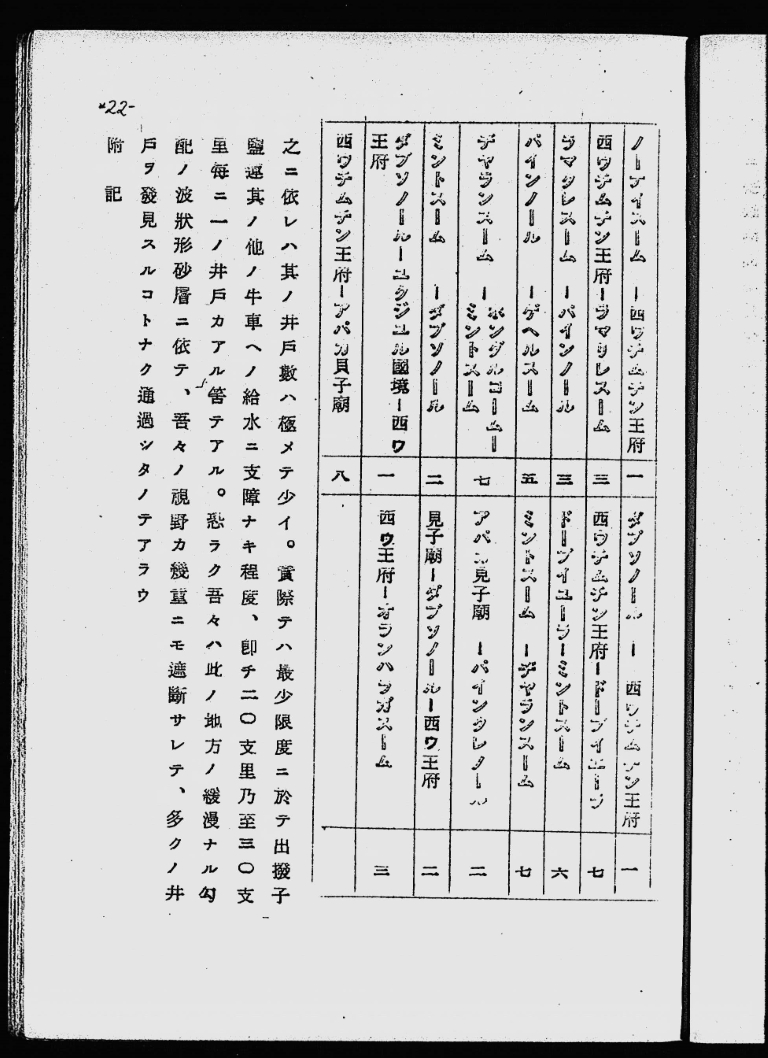 -22-
ノーナイスーム ー西ウチムチン王府 一
西ウチムチン王府ーラマクレスーム 三
ラマクレスーム ーパインノール 三
パインノール ーゲヘルスーム 五
チャランスーム ーホンゴルコームーミントスーム 七
ミントスーム ーダブソノール 二
ダブソノールーユクジユル國境ー西ウ王府 一
西ウチムチン王府ーアパカ貝子廟 八
ダブソノール ー 西ウチムチン王府 一
西ウチムチン王府ードーブイエーラ 七
ドーブイユーラーミントスーム 六
ミントスーム ーチャランスーム 七
アパカ見子廟 ーパインクレノール 二
見子廟ーダブソノールー西ウ王府 二
西ウ王府ーオランハラガスーム 三
之ニ依レハ其ノ井戶數ハ極メテ少イ。實際テハ最少限度ニ於テ出撥子
鹽運其ノ他ノ牛車ヘノ給水ニ支障ナキ程度、卽チ二〇支里乃至三〇支
里每ニ一ノ井戶カアル筈テアル。恐ラク吾々ハ此ノ地方ノ緩漫ナル勾
配ノ波狀形砂層ニ依テ、吾々ノ視野カ幾重ニモ遮斷サレテ、多クノ井
戶ヲ發見スルコトナク通過シタノテアラウ
附記